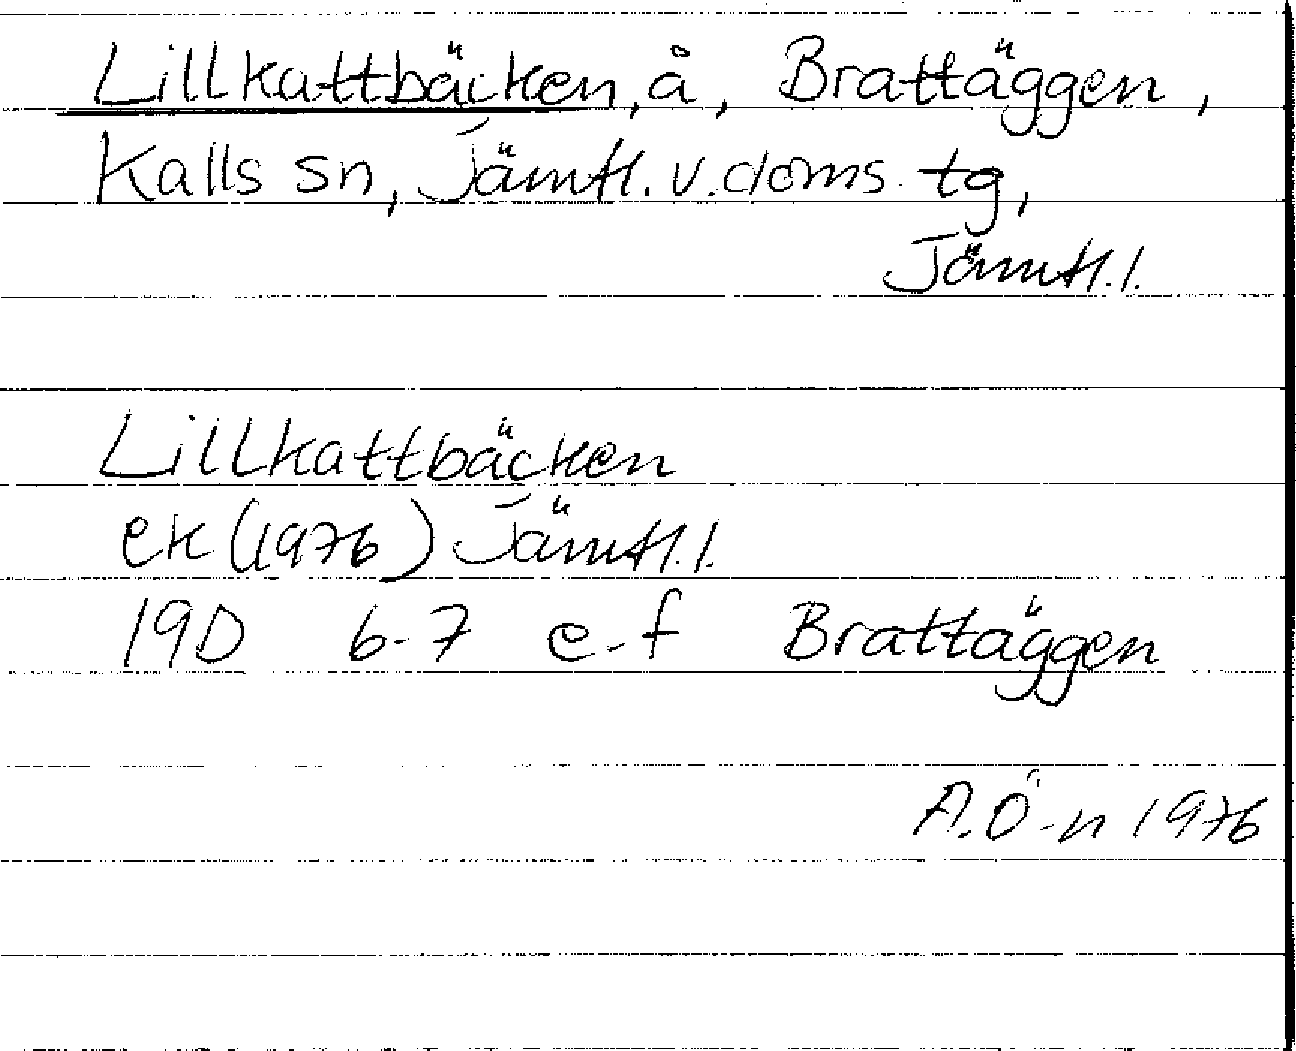 Lillkattbäcken, å, Brattäggen,
Kalls sn, Jämtl. v. doms. tg,
Jämtl. l.
Lillkattbäcken
ek (1976) Jämtl. l.
19D 6-7 e-f Brattäggen
A. Ö-n 1976